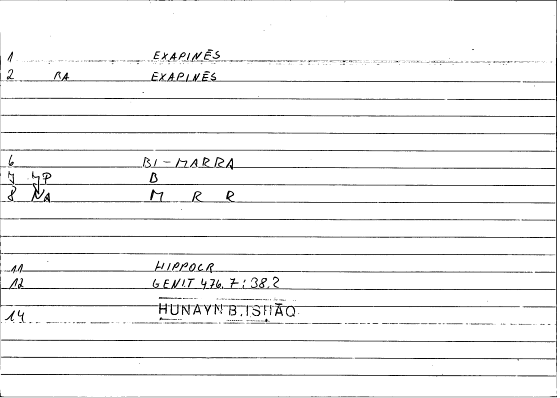 1 EXAPINĒS
2 RA EXAPINĒS
6 BI-MARRA
7 YP B
8 NA M R R
11 HIPPOCR
12 GENIT 476.7; 38.2
14 HUNAYN B. ISḤĀQ